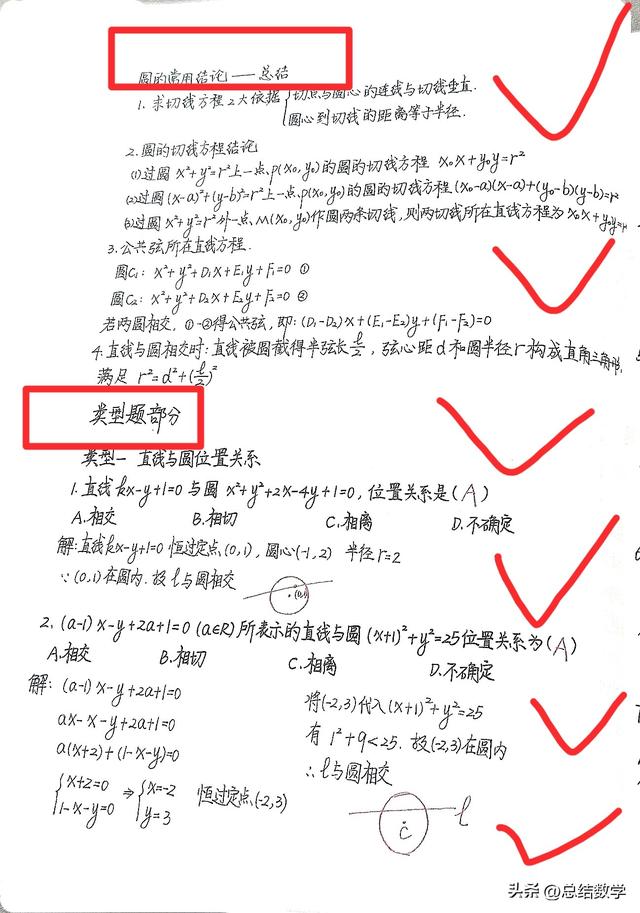 圆的常用结论——总结
1. 求切线方程2大依据{切点与圆心的连线与切线垂直.
圆心到切线的距离等于半径.
2. 圆的切线方程结论
(1)过圆 x²+y²=r²上一点、p(x₀,y₀)的圆的切线方程 x₀x+y₀y=r²
(2)过圆(x-a)²+(y-b)²=r²上一点、p(x₀,y₀)的圆的切线方程(x₀-a)(x-a)+(y₀-b)(y-b)=r²
(3)过圆x²+y²=r²外一点、M(x₀,y₀)作圆两条切线,则两切线所在直线方程为x₀x+y₀y=r
3.公共弦所在直线方程.
圆C₁: x²+y²+D₁x+E₁y+F₁=0 ①
圆C₂: x²+y²+D₂x+E₂y+F₂=0 ②
若两圆相交,①-②得公共弦,即:(D₁-D₂)x+(E₁-E₂)y+(F₁-F₂)=0
4.直线与圆相交时:直线被圆截得半弦长l/2,弦心距d和圆半径r构成直角三角形,
满足 r²=d²+(l/2)²
类型题部分
类型一 直线与圆位置关系
1.直线kx-y+1=0与圆 x²+y²+2x-4y+1=0,位置关系是(A)
A.相交 B.相切 C.相离 D.不确定
解:直线kx-y+1=0 恒过定点、(0,1), 圆心(-1,2) 半径r=2
∵(0,1)在圆内.故l与圆相交
(0,1)
2.(a-1)x-y+2a+1=0 (a∈R)所表示的直线与圆(x+1)²+y²=25位置关系为(A)
A.相交 B.相切 C.相离 D.不确定
解: (a-1)x-y+2a+1=0
ax-x-y+2a+1=0
a(x+2)+(1-x-y)=0
{x+2=0 ⇒ {x=-2 恒过定点、(-2,3)
1-x-y=0 y=3
将(-2,3)代入(x+1)²+y²=25
有 1²+9<25. 故(-2,3)在圆内
∴l与圆相交
l
C
头条 @总结数学